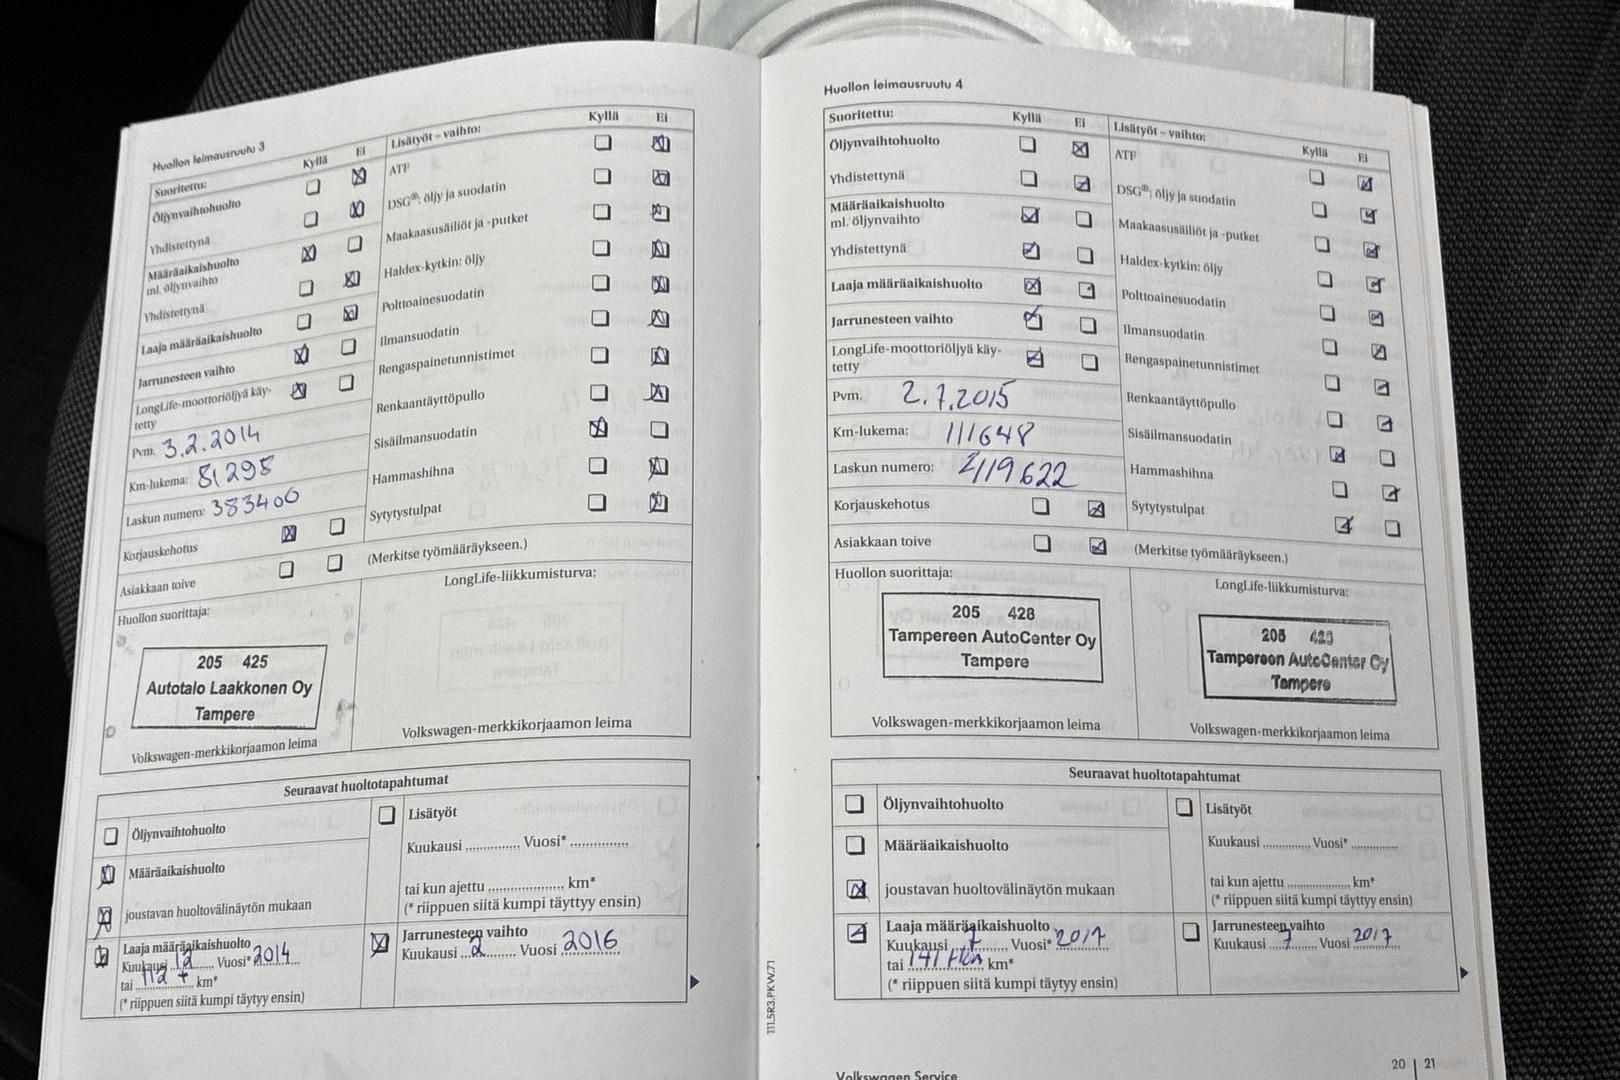 Huollon leimausruutu 3
Suoritettu: Kyllä Ei
Öljynvaihtohuolto
Yhdistettynä
Määräaikaishuolto
ml. öljynvaihto
Yhdistettynä
Laaja määräaikaishuolto
Jarrunesteen vaihto
LongLife-moottoriöljyä käy-
tetty
Pvm. 3.2.2014
Km-lukema: 81295
Laskun numero: 383400
Korjauskehotus
Asiakkaan toive
Lisätyöt – vaihto: Kyllä Ei
ATF
DSG®: öljy ja suodatin
Maakaasusäiliöt ja -putket
Haldex-kytkin: öljy
Polttoainesuodatin
Ilmansuodatin
Rengaspainetunnistimet
Renkaantäyttöpullo
Sisäilmansuodatin
Hammashihna
Sytytystulpat
(Merkitse työmääräykseen.)
Huollon suorittaja:
205 425
Autotalo Laakkonen Oy
Tampere
Volkswagen-merkkikorjaamon leima
LongLife-liikkumisturva:
Volkswagen-merkkikorjaamon leima
Seuraavat huoltotapahtumat
Öljynvaihtohuolto
Määräaikaishuolto
joustavan huoltovälinäytön mukaan
Laaja määräaikaishuolto
Kuukausi 12 Vuosi* 2014
tai 112 t km*
(* riippuen siitä kumpi täytyy ensin)
Lisätyöt
Kuukausi ............... Vuosi* ...............
tai kun ajettu .................... km*
(* riippuen siitä kumpi täyttyy ensin)
Jarrunesteen vaihto
Kuukausi 2 Vuosi 2016
Huollon leimausruutu 4
Suoritettu: Kyllä Ei
Öljynvaihtohuolto
Yhdistettynä
Määräaikaishuolto
ml. öljynvaihto
Yhdistettynä
Laaja määräaikaishuolto
Jarrunesteen vaihto
LongLife-moottoriöljyä käy-
tetty
Pvm. 2.7.2015
Km-lukema: 111648
Laskun numero: 2119622
Korjauskehotus
Asiakkaan toive
Lisätyöt – vaihto: Kyllä Ei
ATF
DSG®: öljy ja suodatin
Maakaasusäiliöt ja -putket
Haldex-kytkin: öljy
Polttoainesuodatin
Ilmansuodatin
Rengaspainetunnistimet
Renkaantäyttöpullo
Sisäilmansuodatin
Hammashihna
Sytytystulpat
(Merkitse työmääräykseen.)
Huollon suorittaja:
205 428
Tampereen AutoCenter Oy
Tampere
Volkswagen-merkkikorjaamon leima
LongLife-liikkumisturva:
205 428
Tampereen AutoCenter Oy
Tampere
Volkswagen-merkkikorjaamon leima
Seuraavat huoltotapahtumat
Öljynvaihtohuolto
Määräaikaishuolto
joustavan huoltovälinäytön mukaan
Laaja määräaikaishuolto
Kuukausi 7 Vuosi* 2017
tai 141 tkm km*
(* riippuen siitä kumpi täytyy ensin)
Lisätyöt
Kuukausi ............... Vuosi* ...............
tai kun ajettu .................... km*
(* riippuen siitä kumpi täyttyy ensin)
Jarrunesteen vaihto
Kuukausi 7 Vuosi 2017
111.5R3.PKW.71
Volkswagen Service
20 | 21